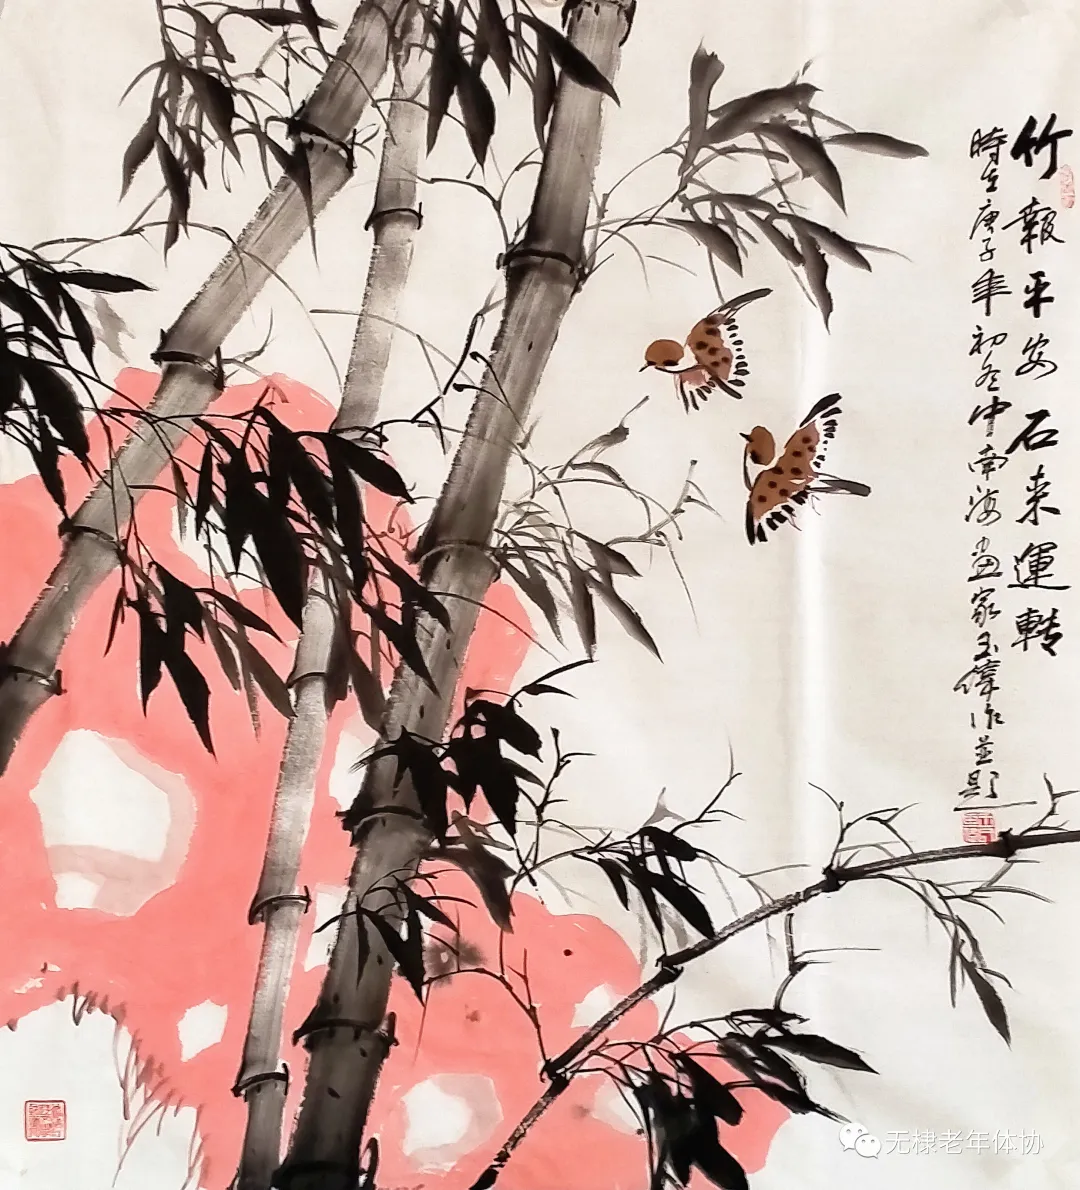 竹報平安石来運轉
時在庚子年初冬中南海画家玉偉作并題
无棣老年体协